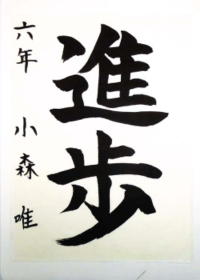 進歩
六年 小森唯